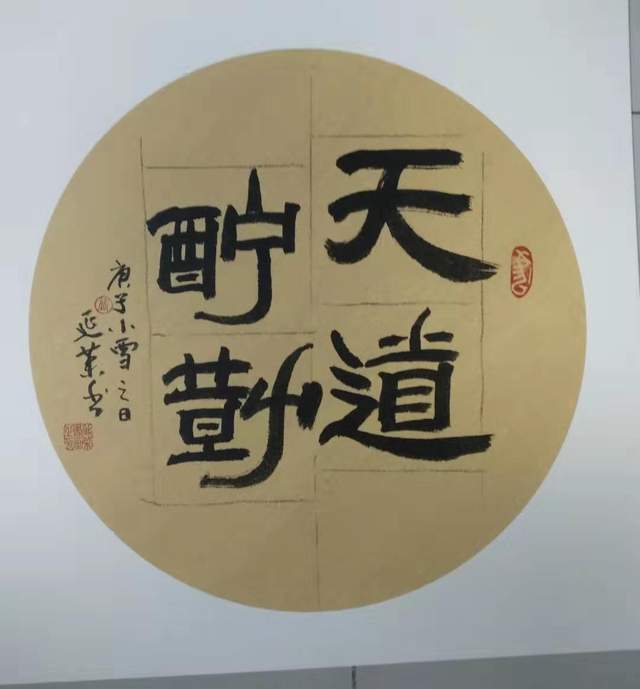 天道
酬勤
庚子小雪之日
延书